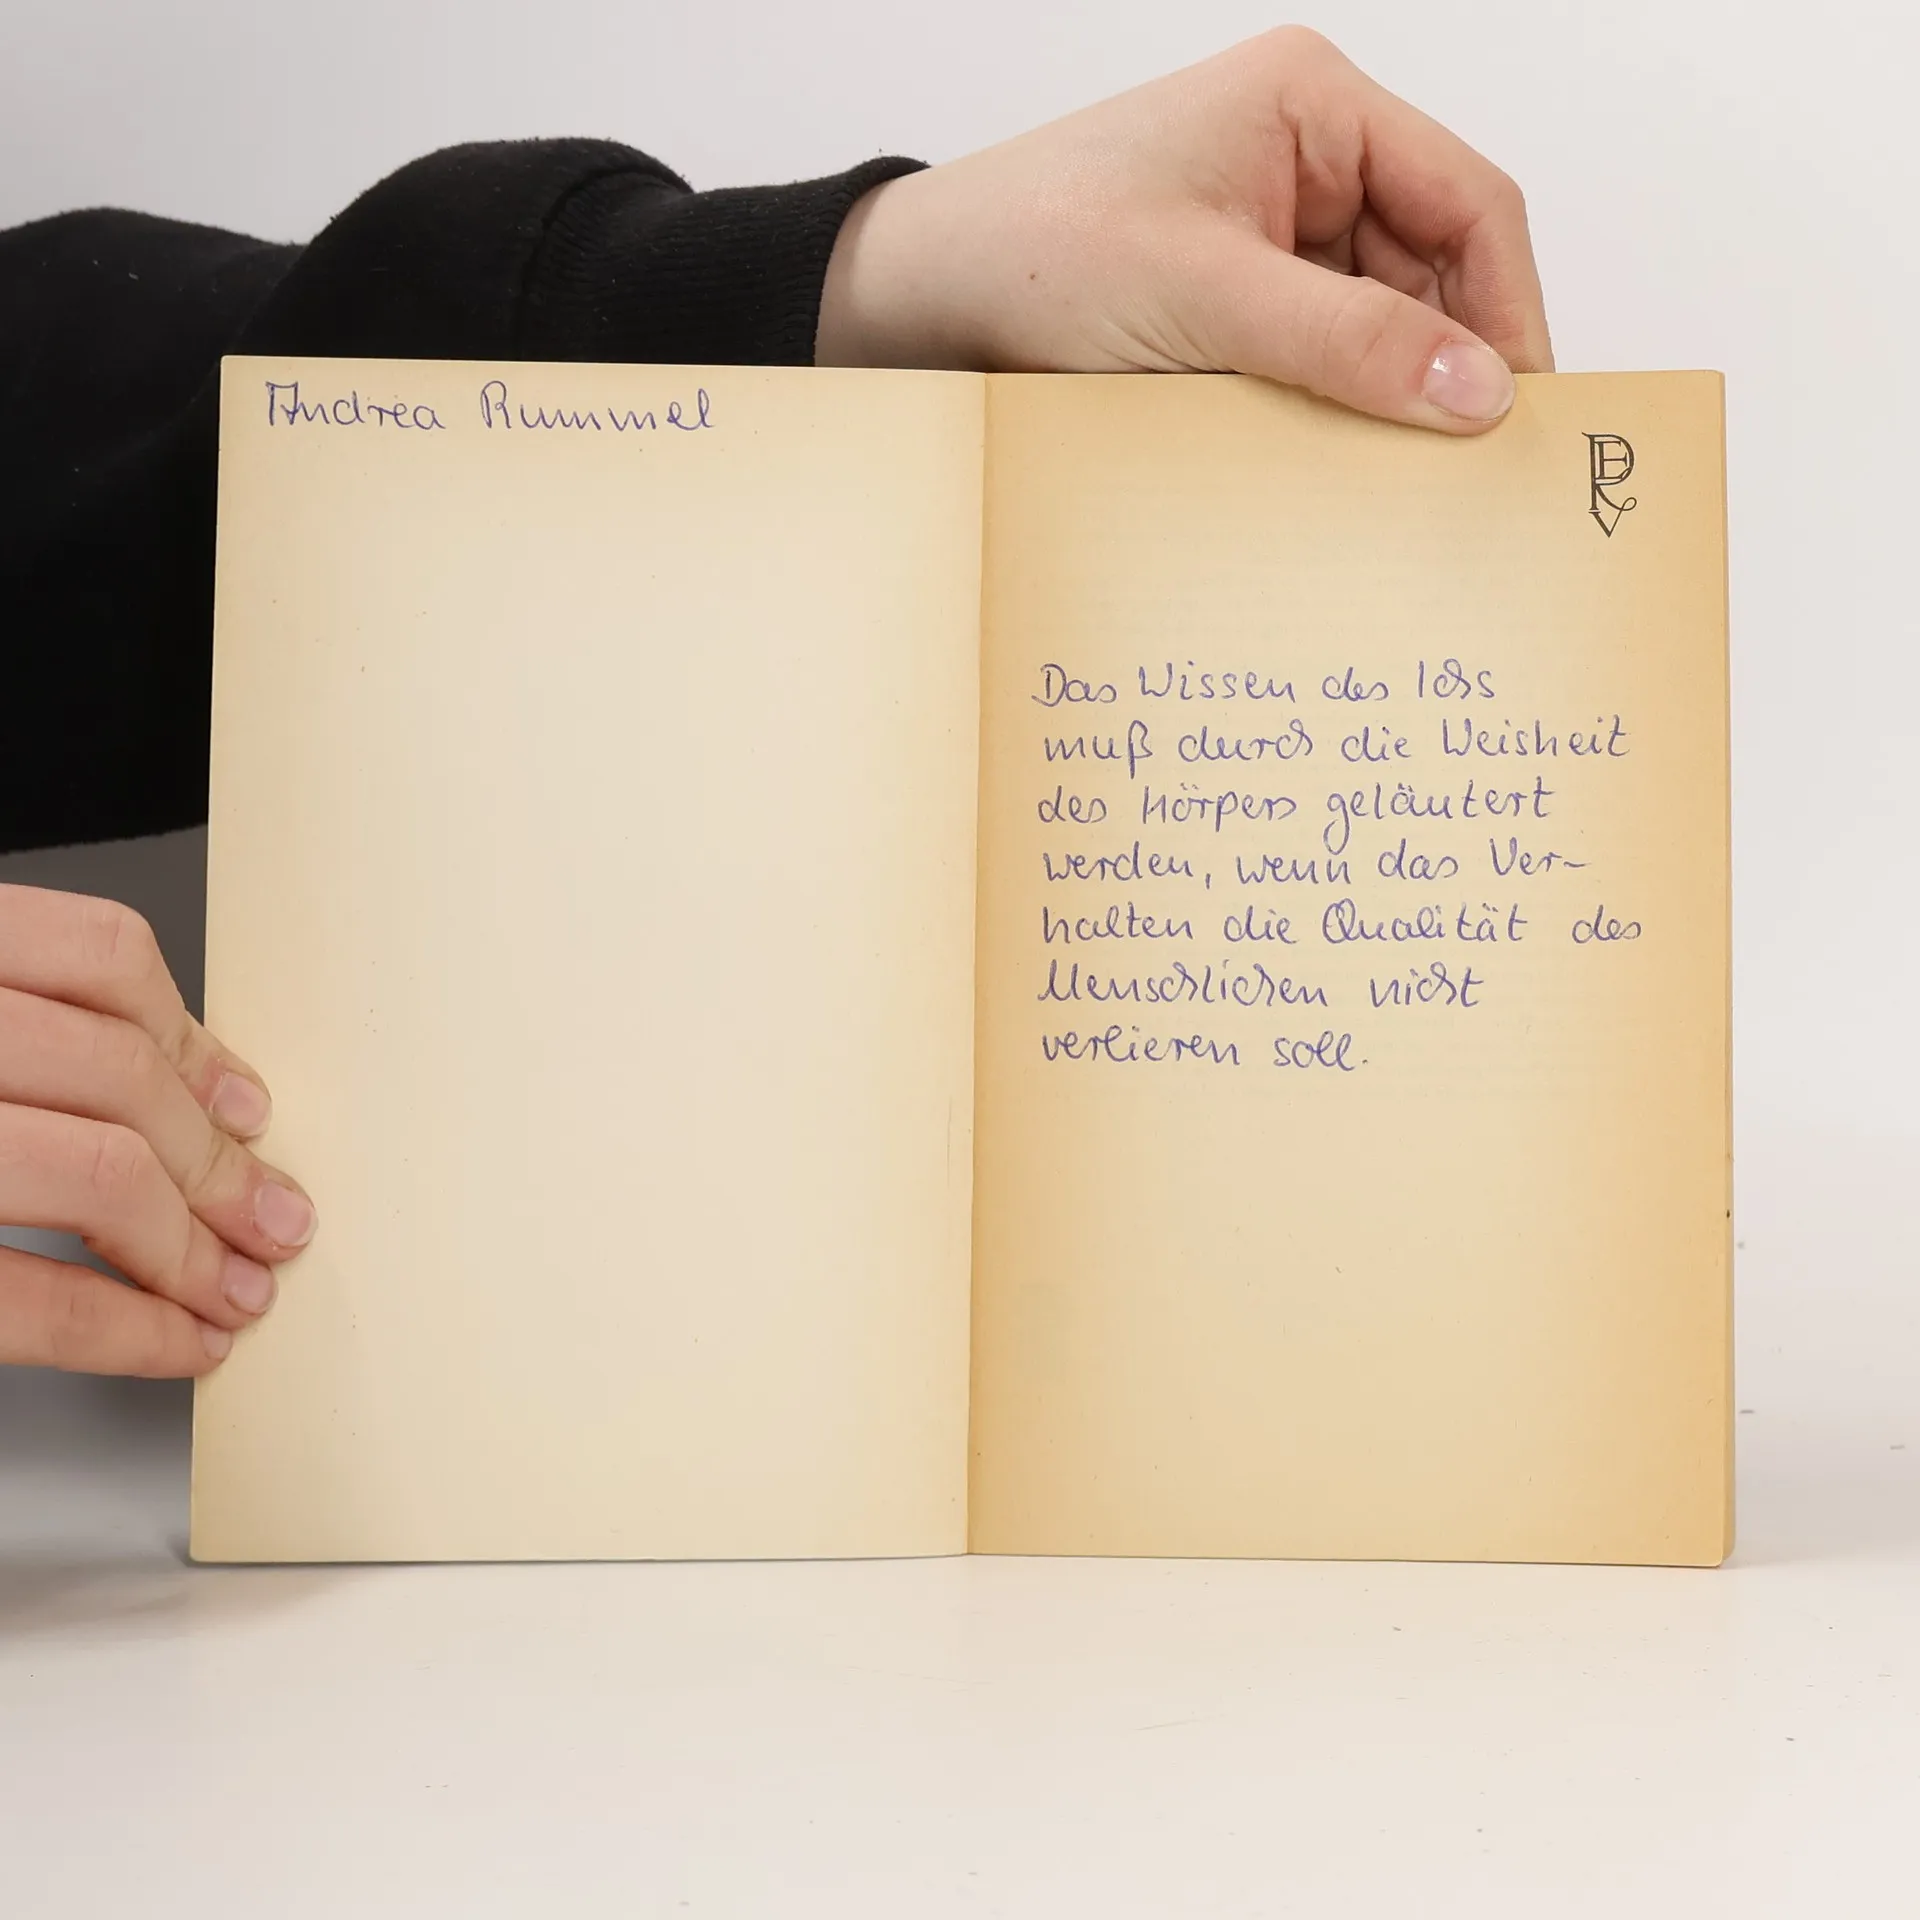 Andrea Rummel
ERV
Das Wissen des Ichs
muß durch die Weisheit
des Körpers geläutert
werden, wenn das Ver-
halten die Qualität des
Menschlichen nicht
verlieren soll.